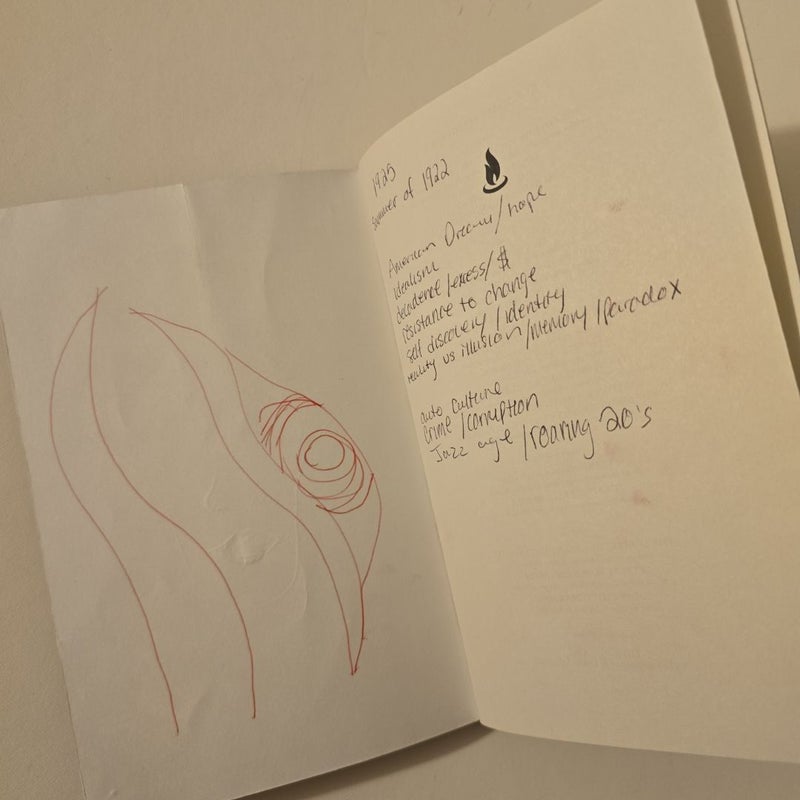 1925
Summer of 1922
American Dream/hope
idealism
decadence/excess/$
resistance to change
self discovery/identity
reality vs illusion/memory/paradox
auto culture
Crime/corruption
Jazz age/roaring 20's